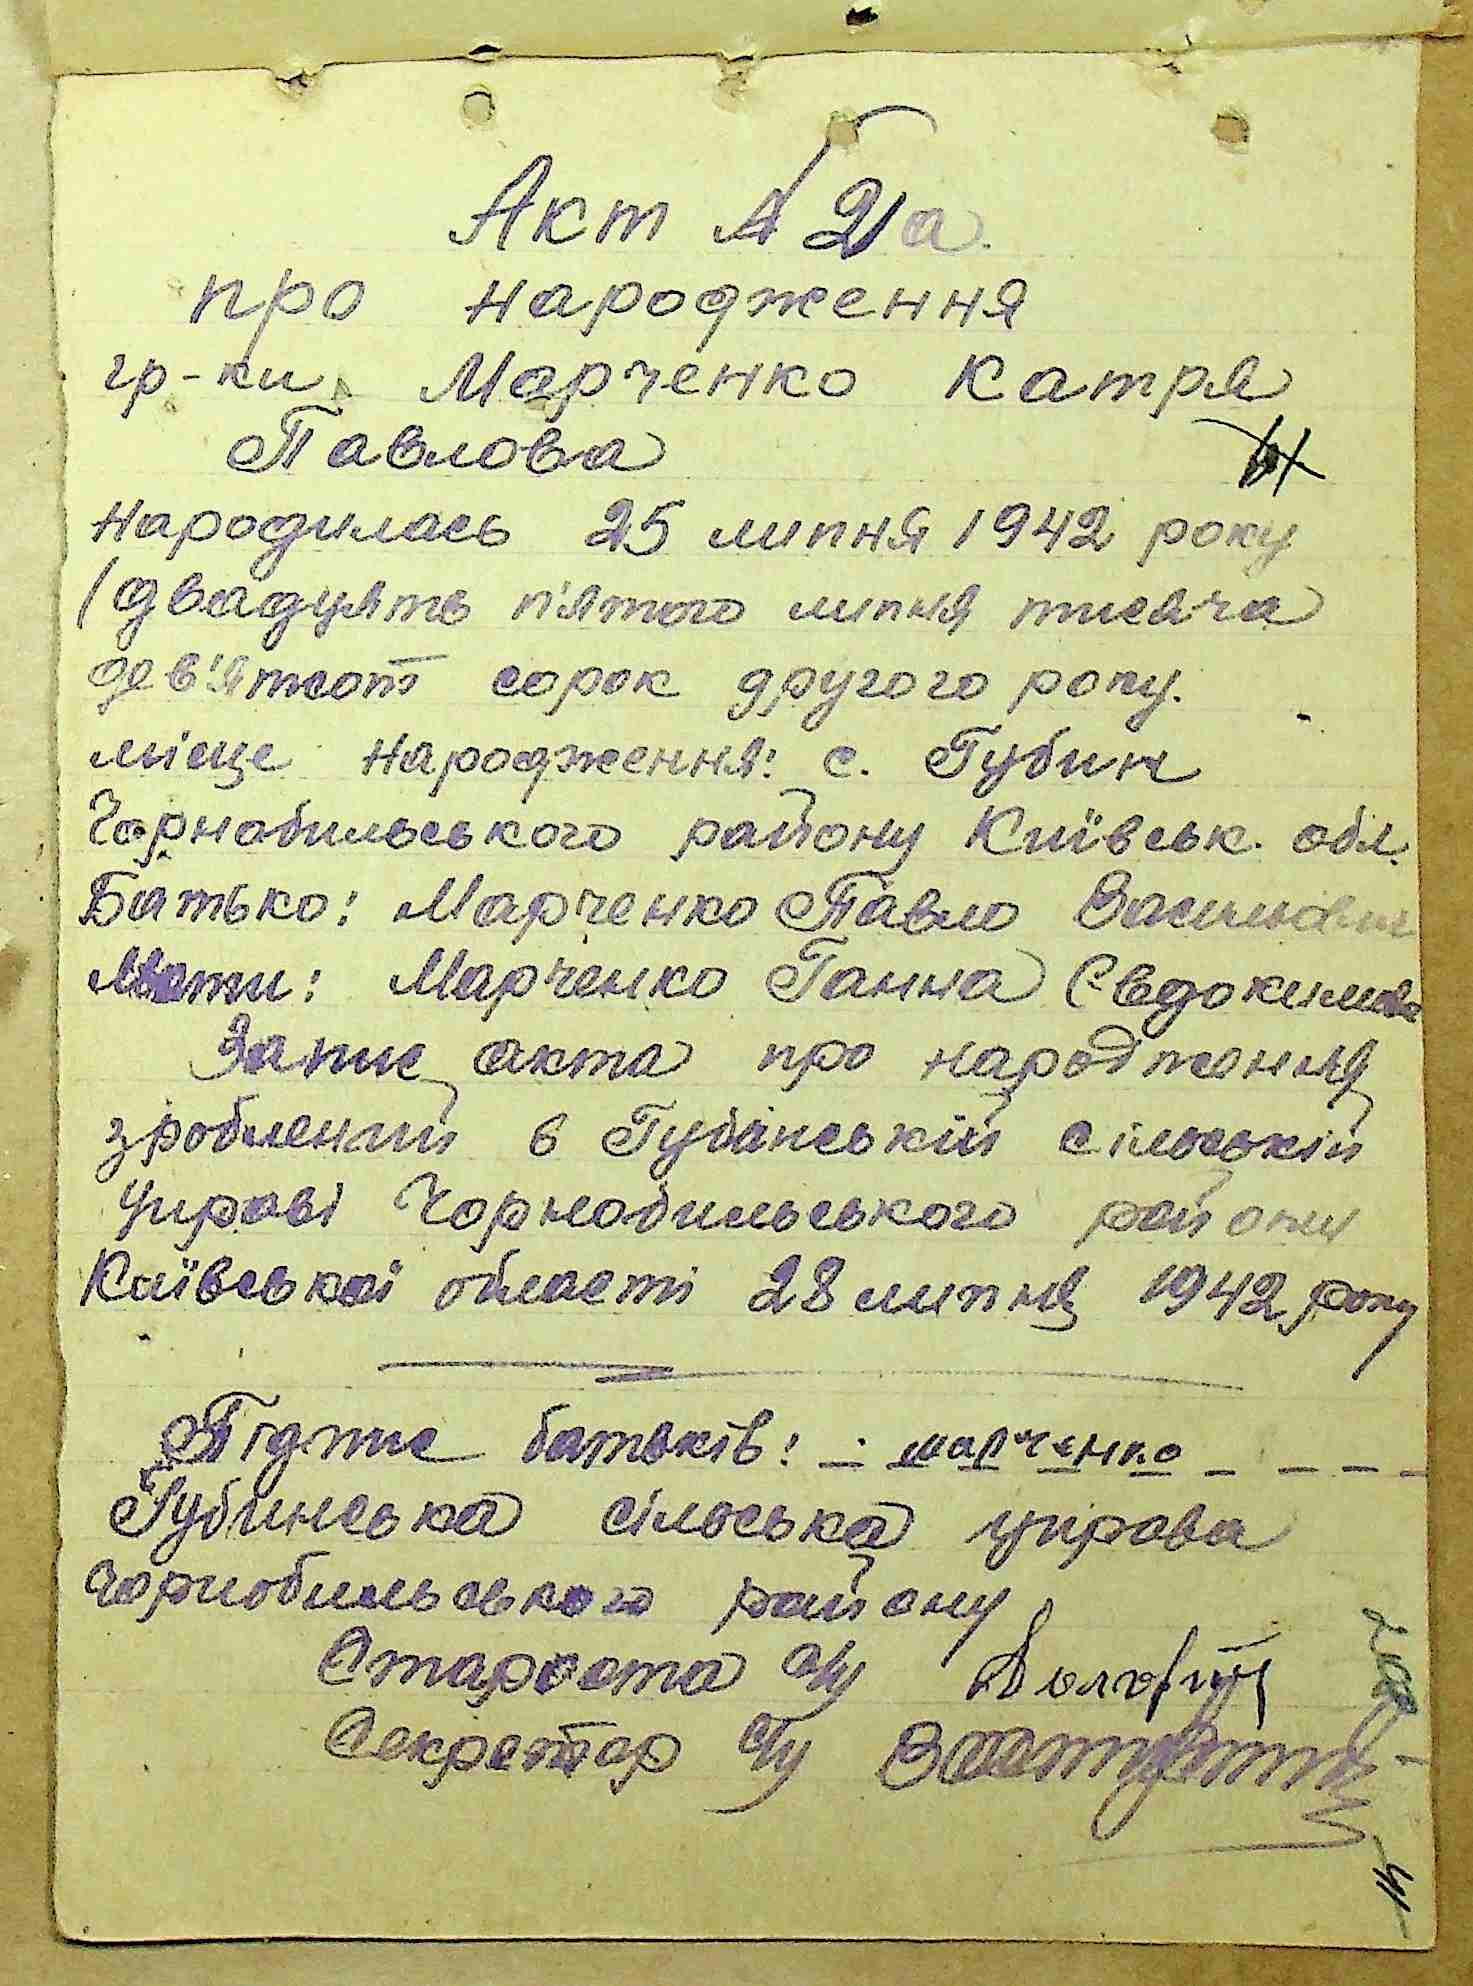 Акт № 2а
про народження
гр-ки Марченко Катря
Павлова
народилась 25 липня 1942 року
(двадцять п'ятого липня тисяча
дев'ятсот сорок другого року.
місце народження: с. Губин
Чорнобильського району Київськ. обл.
Батько: Марченко Павло Васильович
Мати: Марченко Ганна Євдокимова
Запис акта про народження
зроблений в Губінській сільській
управі Чорнобильського району
Київської області 28 липня 1942 року
Підпис батьків: марченко
Губинська сільська управа
Чорнобильського району
Староста с/у
Секретар с/у